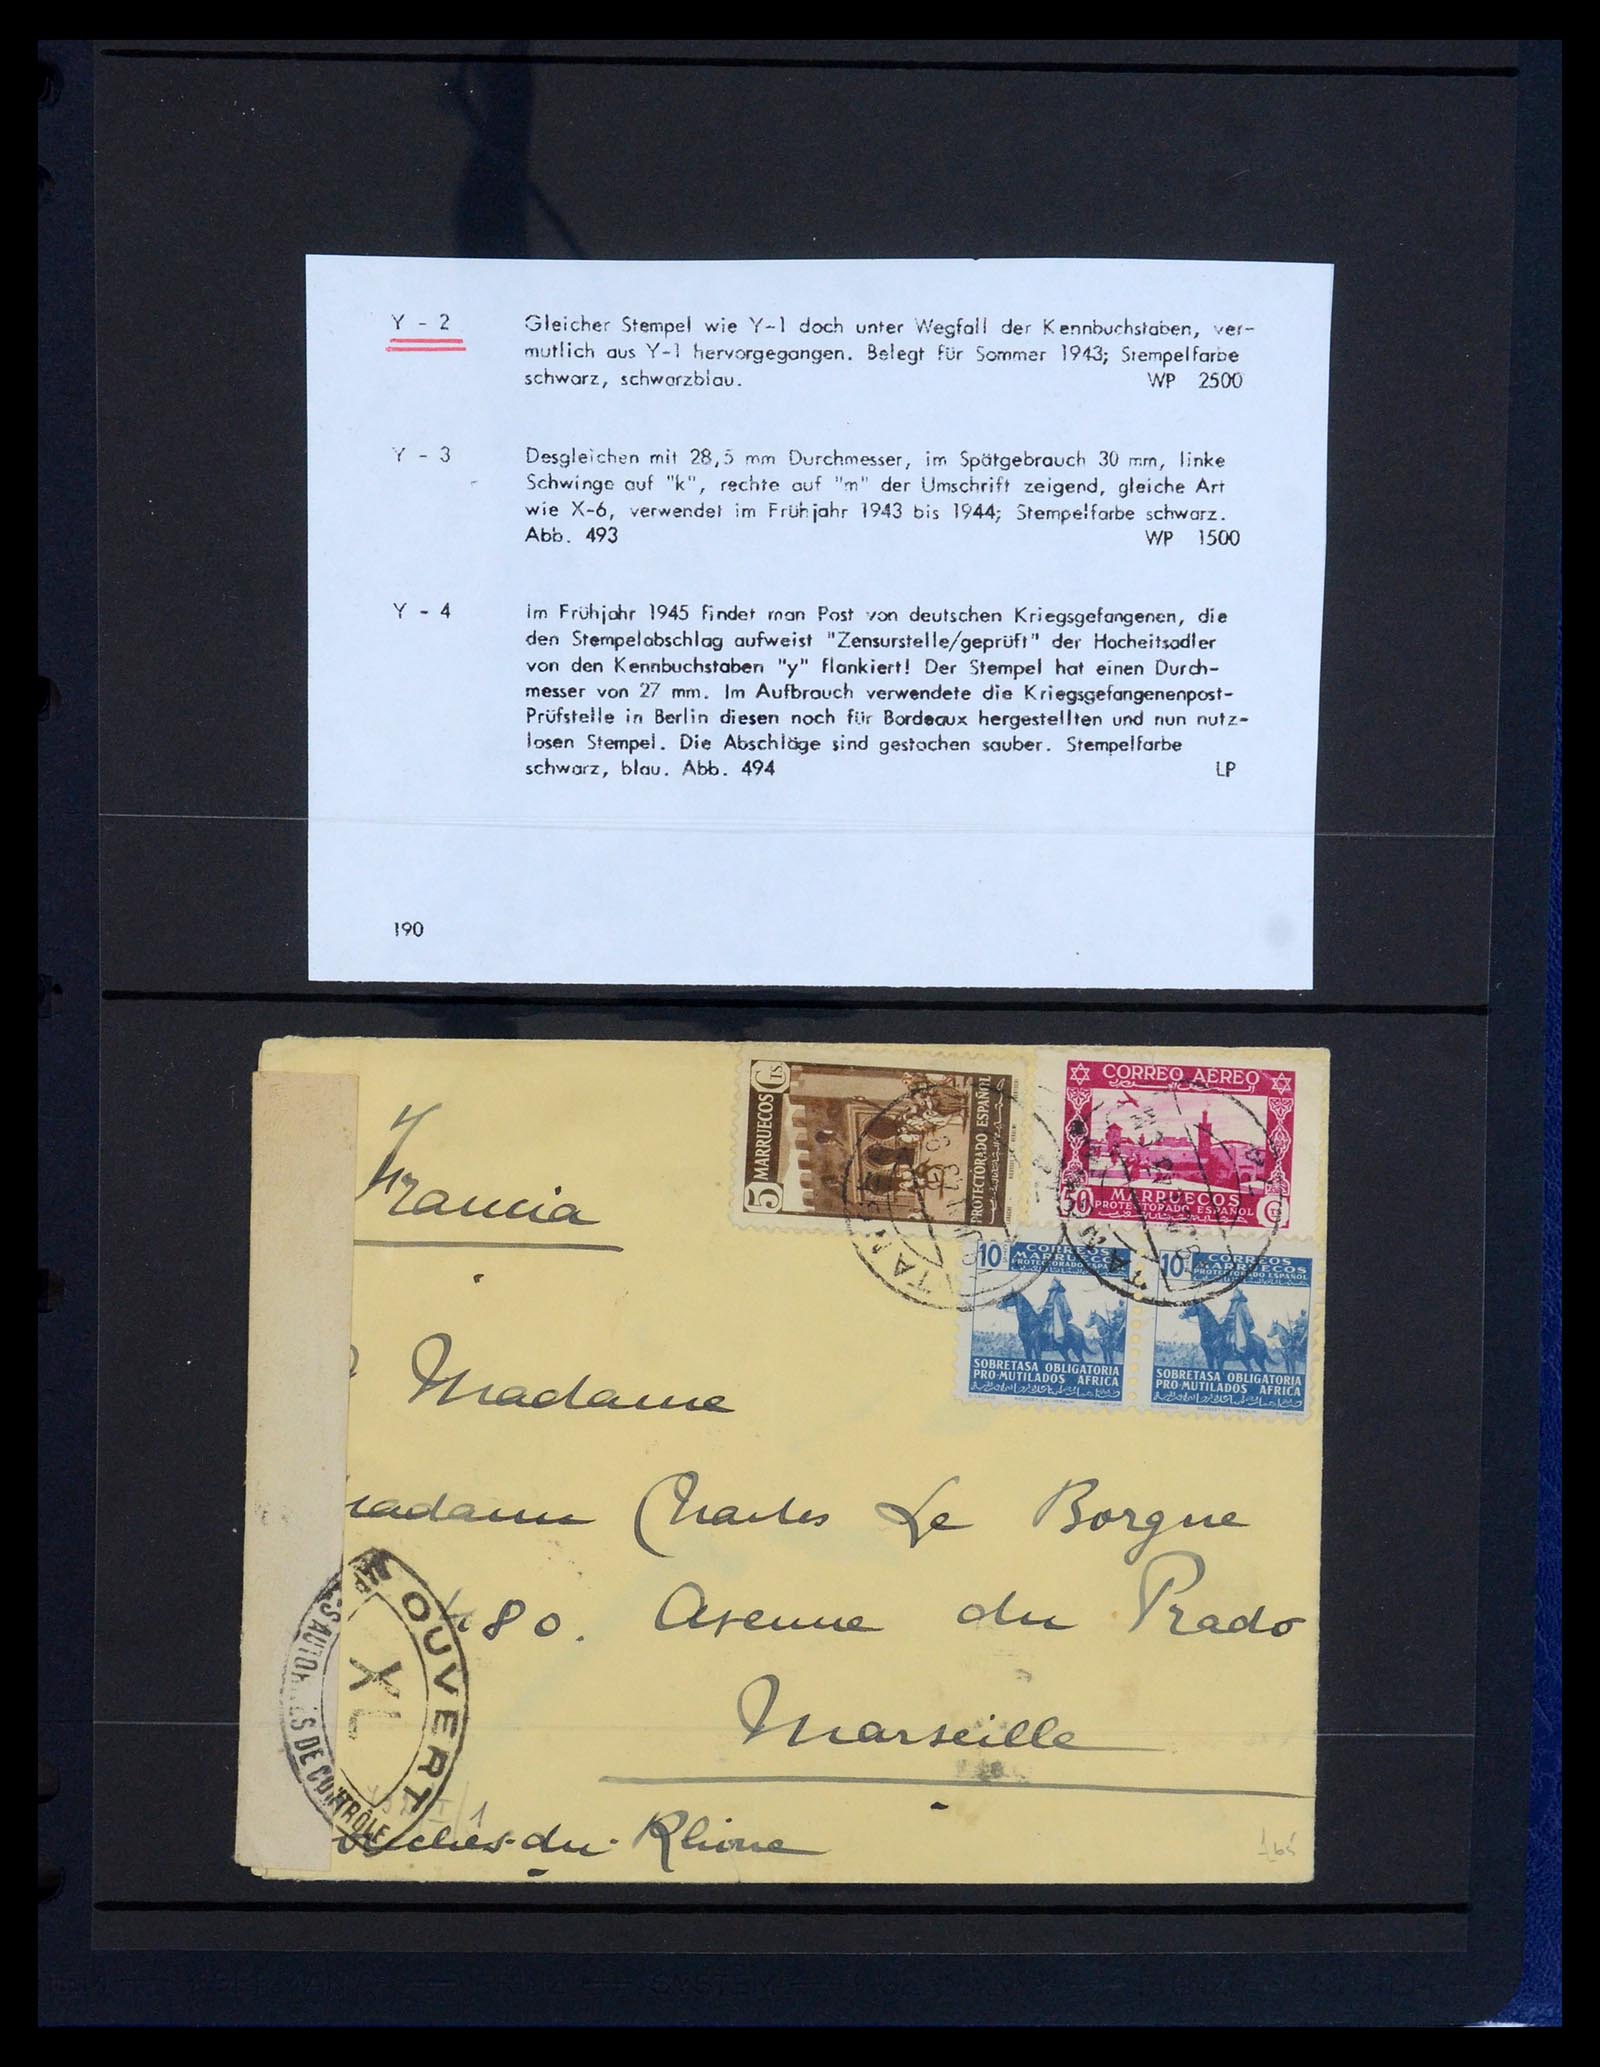 Y - 2 Gleicher Stempel wie Y-1 doch unter Wegfall der Kennbuchstaben, ver-
mutlich aus Y-1 hervorgegangen. Belegt für Sommer 1943; Stempelfarbe
schwarz, schwarzblau. WP 2500
Y - 3 Desgleichen mit 28,5 mm Durchmesser, im Spätgebrauch 30 mm, linke
Schwinge auf "k", rechte auf "m" der Umschrift zeigend, gleiche Art
wie X-6, verwendet im Frühjahr 1943 bis 1944; Stempelfarbe schwarz.
Abb. 493 WP 1500
Y - 4 Im Frühjahr 1945 findet man Post von deutschen Kriegsgefangenen, die
den Stempelabschlag aufweist "Zensurstelle/geprüft" der Hocheitsadler
von den Kennbuchstaben "y" flankiert! Der Stempel hat einen Durch-
messer von 27 mm. Im Aufbrauch verwendete die Kriegsgefangenenpost-
Prüfstelle in Berlin diesen noch für Bordeaux hergestellten und nun nutz-
losen Stempel. Die Abschläge sind gestochen sauber. Stempelfarbe
schwarz, blau. Abb. 494 LP
190
5 MARRUECOS Cts.
PROTECTORADO ESPAÑOL
CORREO AÉREO
50 MARRUECOS
PROTECTORADO ESPAÑOL
10 CORREOS
MARRUECOS
PROTECTORADO ESPAÑOL
SOBRETASA OBLIGATORIA
PRO-MUTILADOS AFRICA
10 CORREOS
MARRUECOS
PROTECTORADO ESPAÑOL
SOBRETASA OBLIGATORIA
PRO-MUTILADOS AFRICA
Francia
Madame
Madame Charles Le Borgne
480. Avenue du Prado
Marseille
Bouches-du-Rhône
OUVERT
XL
AUTORITÉS DE CONTRÔLE
SYSTEM